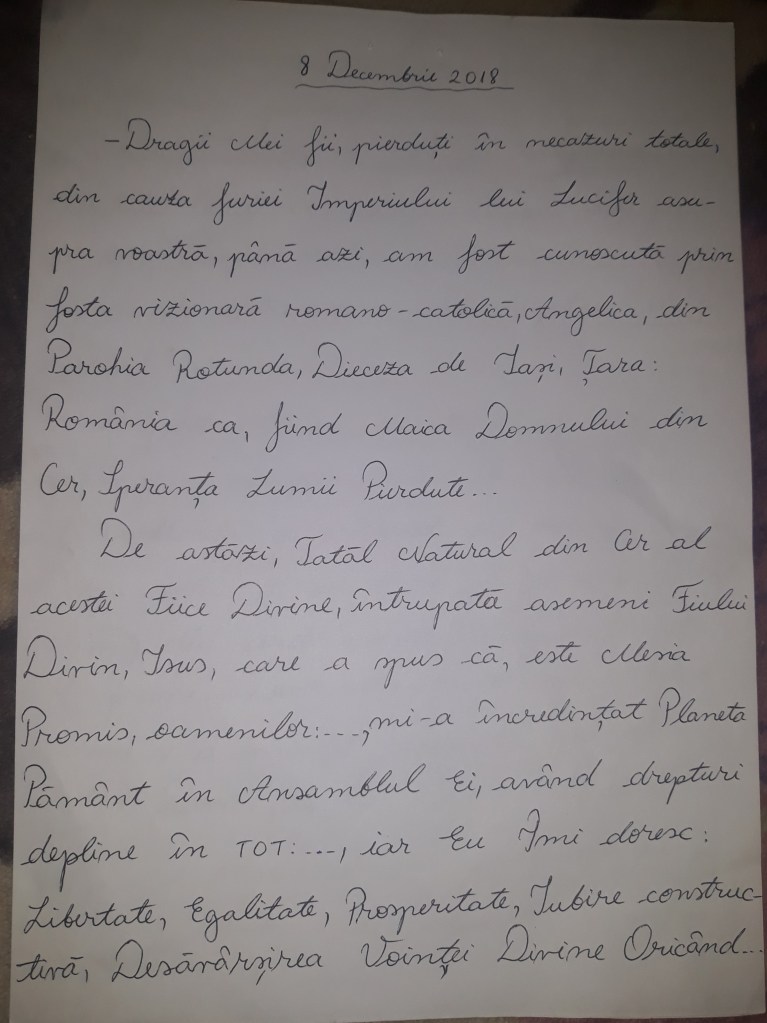 8 Decembrie 2018
-Dragii Mei fii, pierduți în necazuri totale,
din cauza furiei Imperiului lui Lucifer asu-
pra voastră, până azi, am fost cunoscută prin
fosta vizionară romano-catolică, Angelica, din
Parohia Rotunda, Dieceza de Iași, Țara:
România ca, fiind Maica Domnului din
Cer, Speranța Lumii Pierdute...
De astăzi, Tatăl Natural din Cer al
acestei Fiice Divine, întrupata asemeni Fiului
Divin, Isus, care a spus că, este Mesia
Promis, oamenilor:..., mi-a încredințat Planeta
Pământ în Ansamblul Ei, având drepturi
depline în TOT:..., iar Eu Îmi doresc:
Libertate, Egalitate, Prosperitate, Iubire construc-
tivă, Desăvârșirea Voinței Divine Oricând...